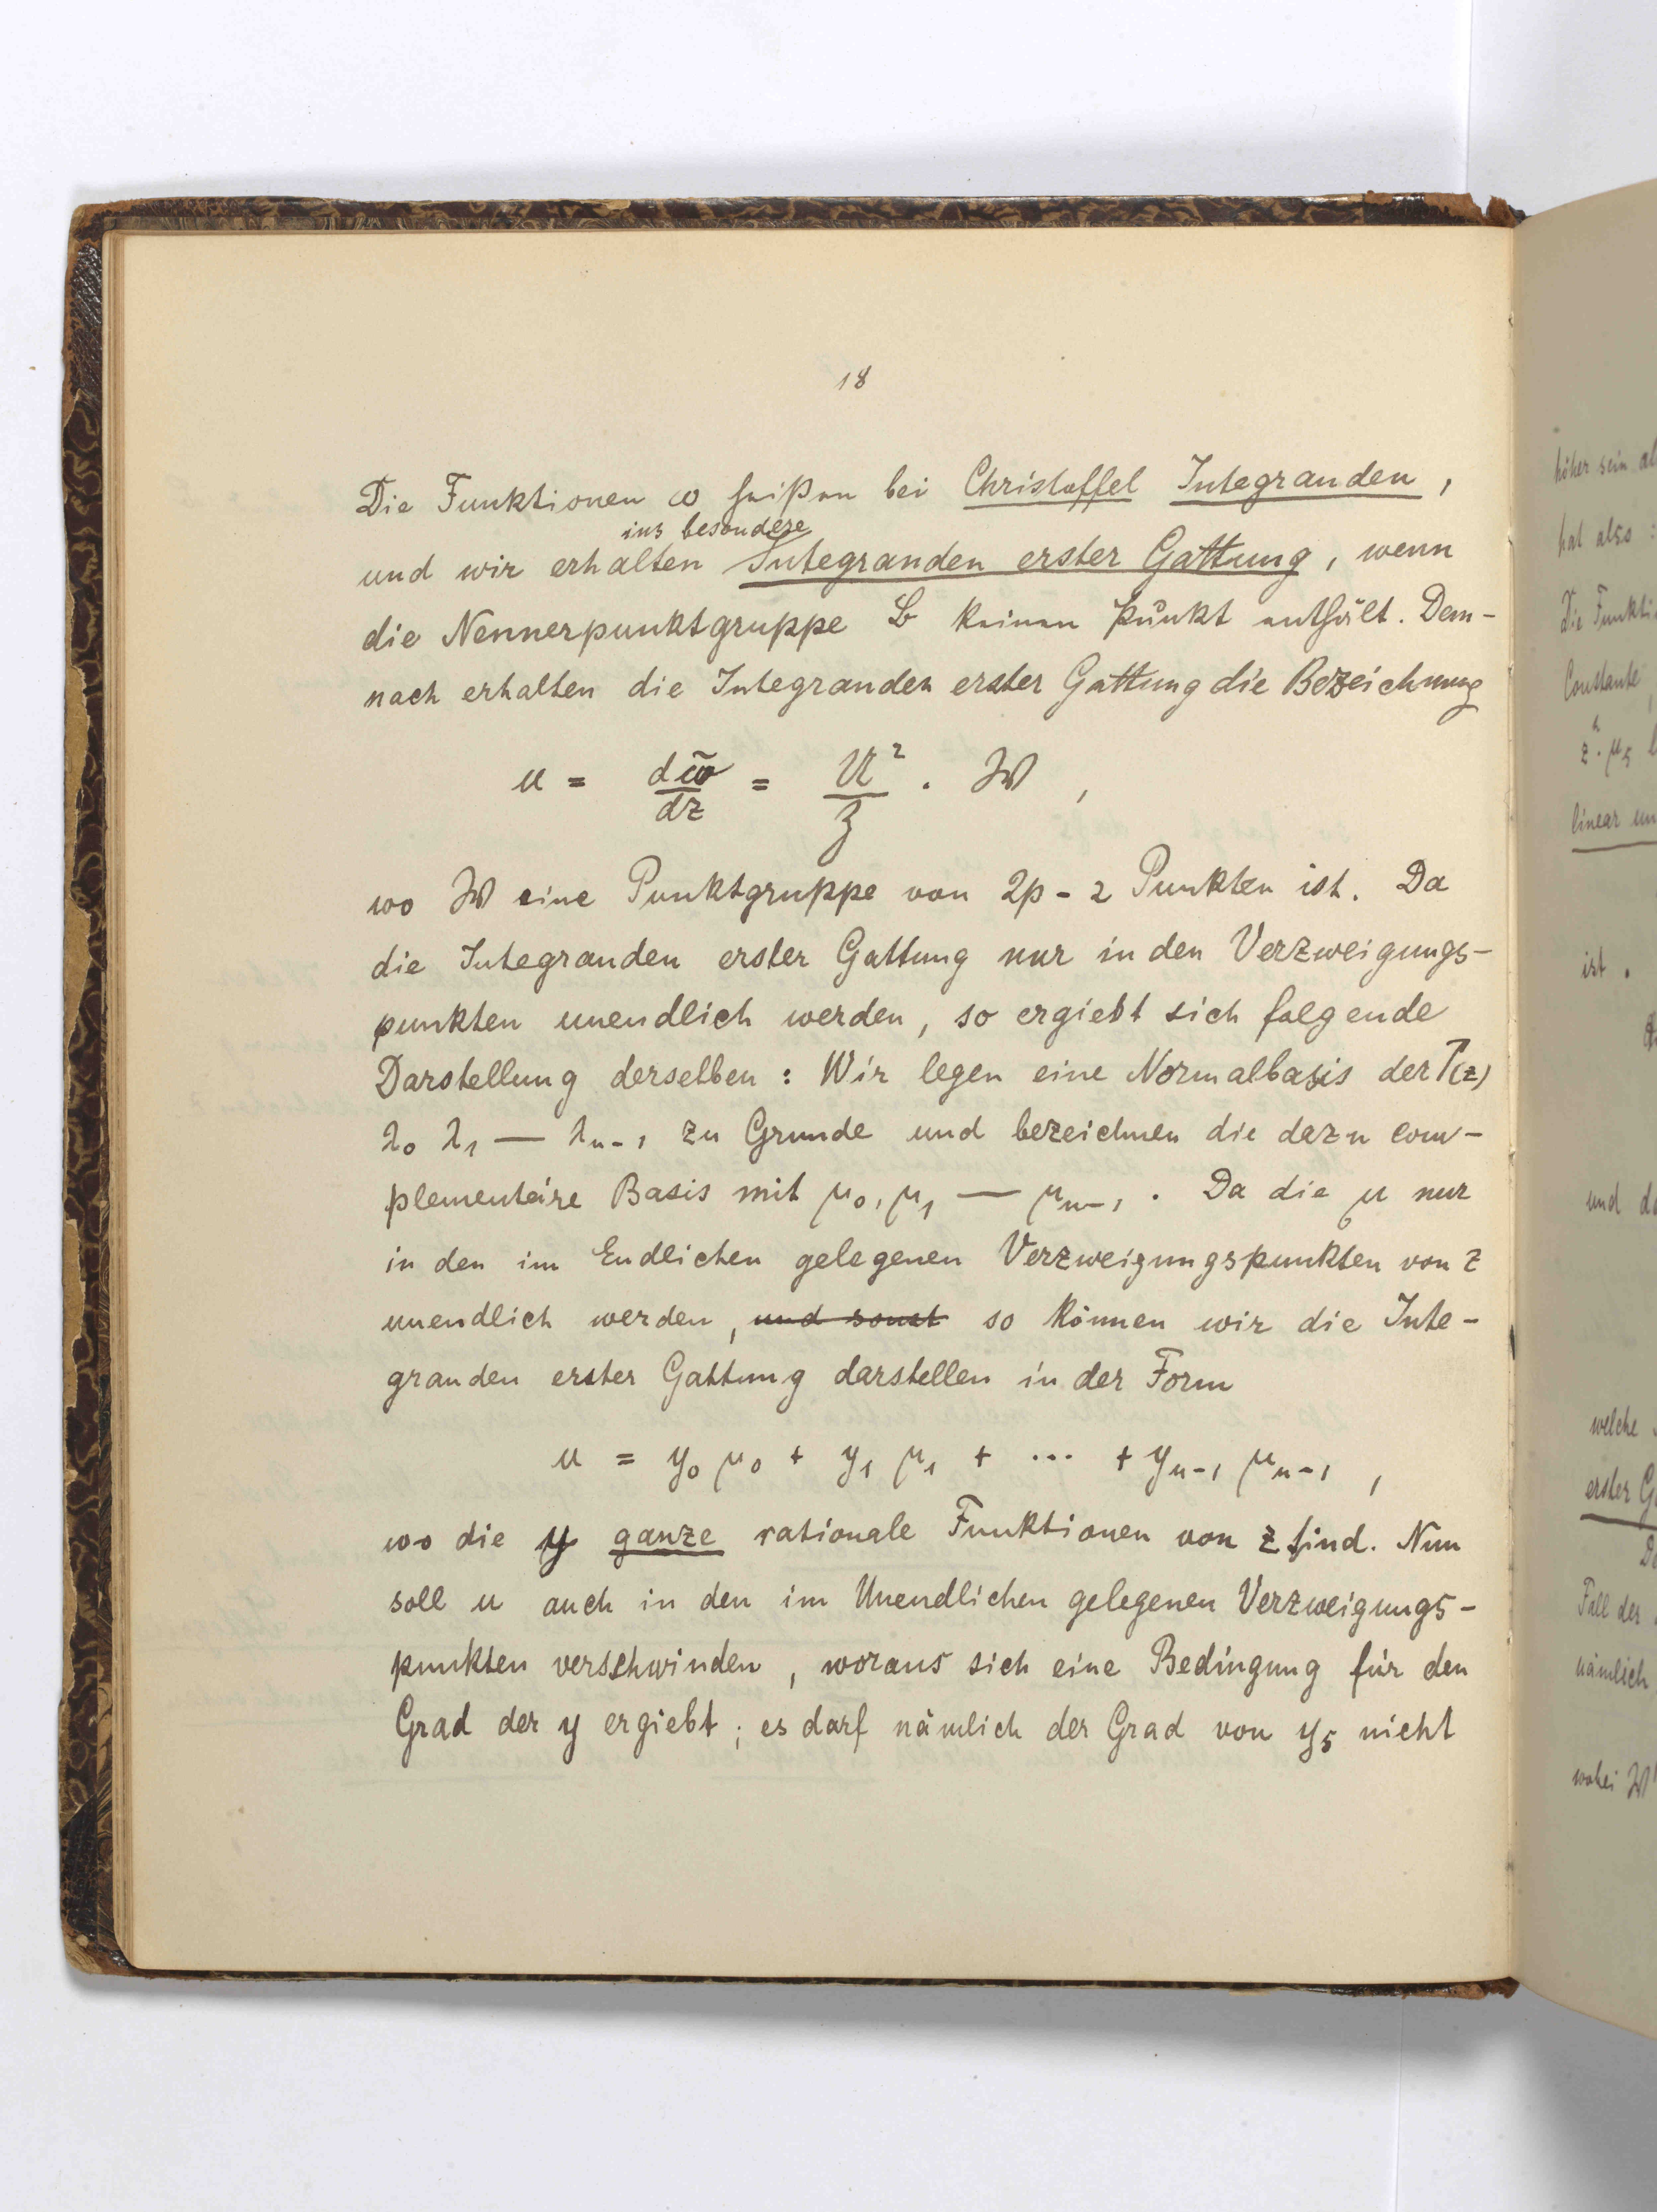 18
Die Funktionen ω heißen bei Christoffel Integranden,
ins besondere
und wir erhalten Integranden erster Gattung, wenn
die Nennerpunktgruppe L keinen Punkt enthält. Dem-
nach erhalten die Integranden erster Gattung die Bezeichnung
u = dω̃/dz = 𝔘²/𝔷 · 𝔚,
wo 𝔚 eine Punktgruppe von 2p-2 Punkten ist. Da
die Integranden erster Gattung nur in den Verzweigungs-
punkten unendlich werden, so ergiebt sich folgende
Darstellung derselben: Wir legen eine Normalbasis der T(z)
λ₀ λ₁ — λₙ₋₁ zu Grunde und bezeichnen die dazu com-
plementäre Basis mit μ₀, μ₁ — μₙ₋₁. Da die μ nur
in den im Endlichen gelegenen Verzweigungspunkten von z
unendlich werden, und sonst so können wir die Inte-
granden erster Gattung darstellen in der Form
u = y₀ μ₀ + y₁ μ₁ + ... + yₙ₋₁ μₙ₋₁,
wo die y ganze rationale Funktionen von z sind. Nun
soll u auch in den im Unendlichen gelegenen Verzweigungs-
punkten verschwinden, woraus sich eine Bedingung für den
Grad der y ergiebt; es darf nämlich der Grad von y₅ nicht
höher sein al
hat also :
Die Funkti
Constante
linear un
ist.
und da
welche
erster G
Fall der
nämlich
wobei 𝔚